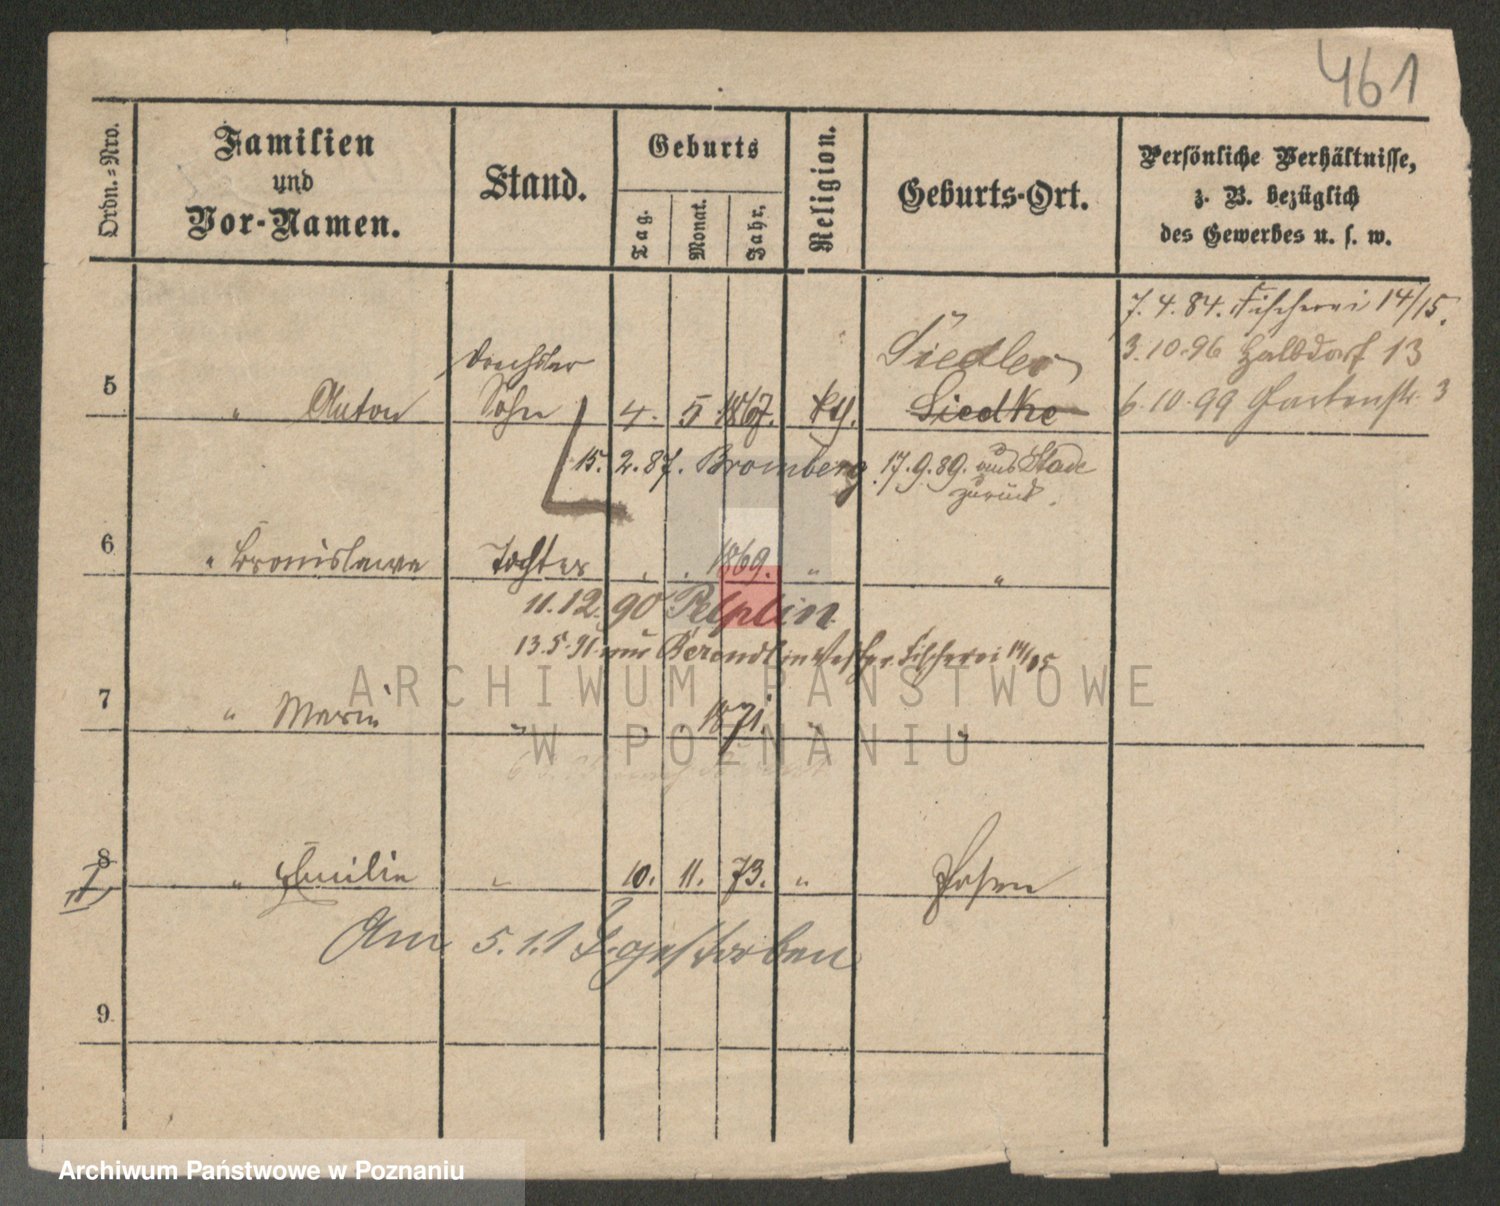 461
Ordn.=Nro.
Familien
und
Vor-Namen.
Stand.
Geburts
Tag.
Monat.
Jahr.
Religion.
Geburts-Ort.
Persönliche Verhältnisse,
z. B. bezüglich
des Gewerbes u. s. w.
7.4.84. Fischerei 14/15.
3.10.96 Halbdorf 13
6.10.99 Gartenstr. 3
Drechsler
Siedler
5 " Anton Sohn 4. 5 1867. kth. Siedke
15. 2. 87. Bromberg 17.9.89. aus Stade
zurück.
6 " Bronislawa Tochter " " 1869. " "
11.12.90 Pelplin
13.5.91. aus Berendt in Westpr. Fischerei 14/15
7 " Marie " " " 1871. " "
8 " Emilie " 10. 11. 73. " Posen
Am 5.1.1 gestorben
9
ARCHIWUM PAŃSTWOWE
W POZNANIU
Archiwum Państwowe w Poznaniu